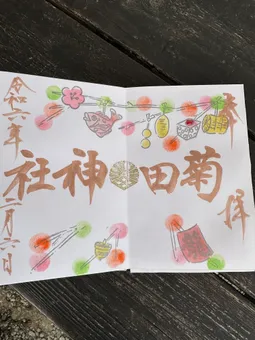 奉拝
菊田神社
令和六年二月六日